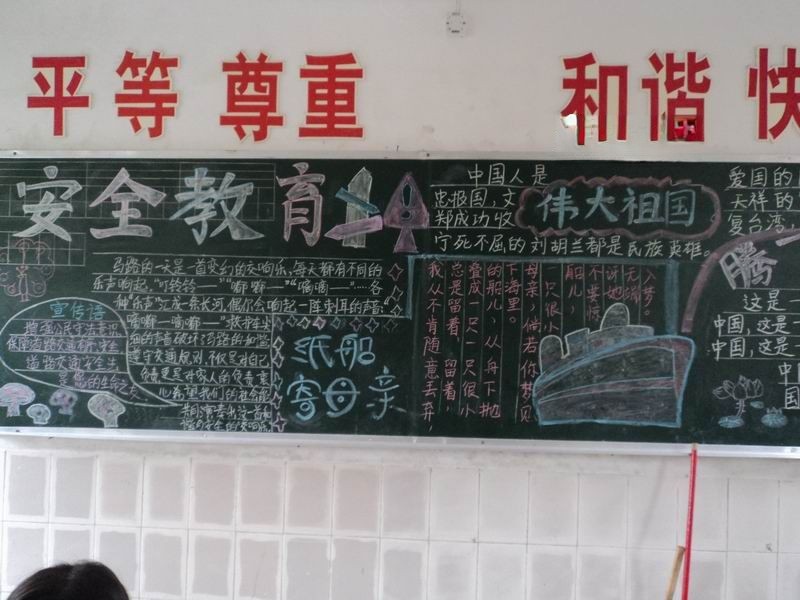 平等 尊重 和谐 快
安全教育
马路的一天是一首变幻的交响乐,每天都有不同的
乐声响起。"叮铃铃——""嘟嘟——""嘀嘀——"……各
种"乐声"汇成一条长河,偶尔会响起一阵刺耳的声音:"
嘀嘟—嘀嘟—"救护车尖
遵守交通规则,不仅是对自己
负责更是对家人的负责衷
心希望我们的社会能
宣传语
增强公民守法意识
保障道路交通有序安全
纸船
寄母亲
中国人是
忠报国,文
郑成功收
宁死不屈的刘胡兰都是民族英雄。
伟大祖国
我从不肯随意丢弃,
总是留着 留着,
叠成一只一只很小
的船儿,从舟下抛
下海里。
母亲,倘若你梦见
一只很小
船儿,
不要惊
讶她
无端
入梦。
爱国的
天祥的
复台湾,
腾
这是一
中国,这是一
中国,这是一
中
国